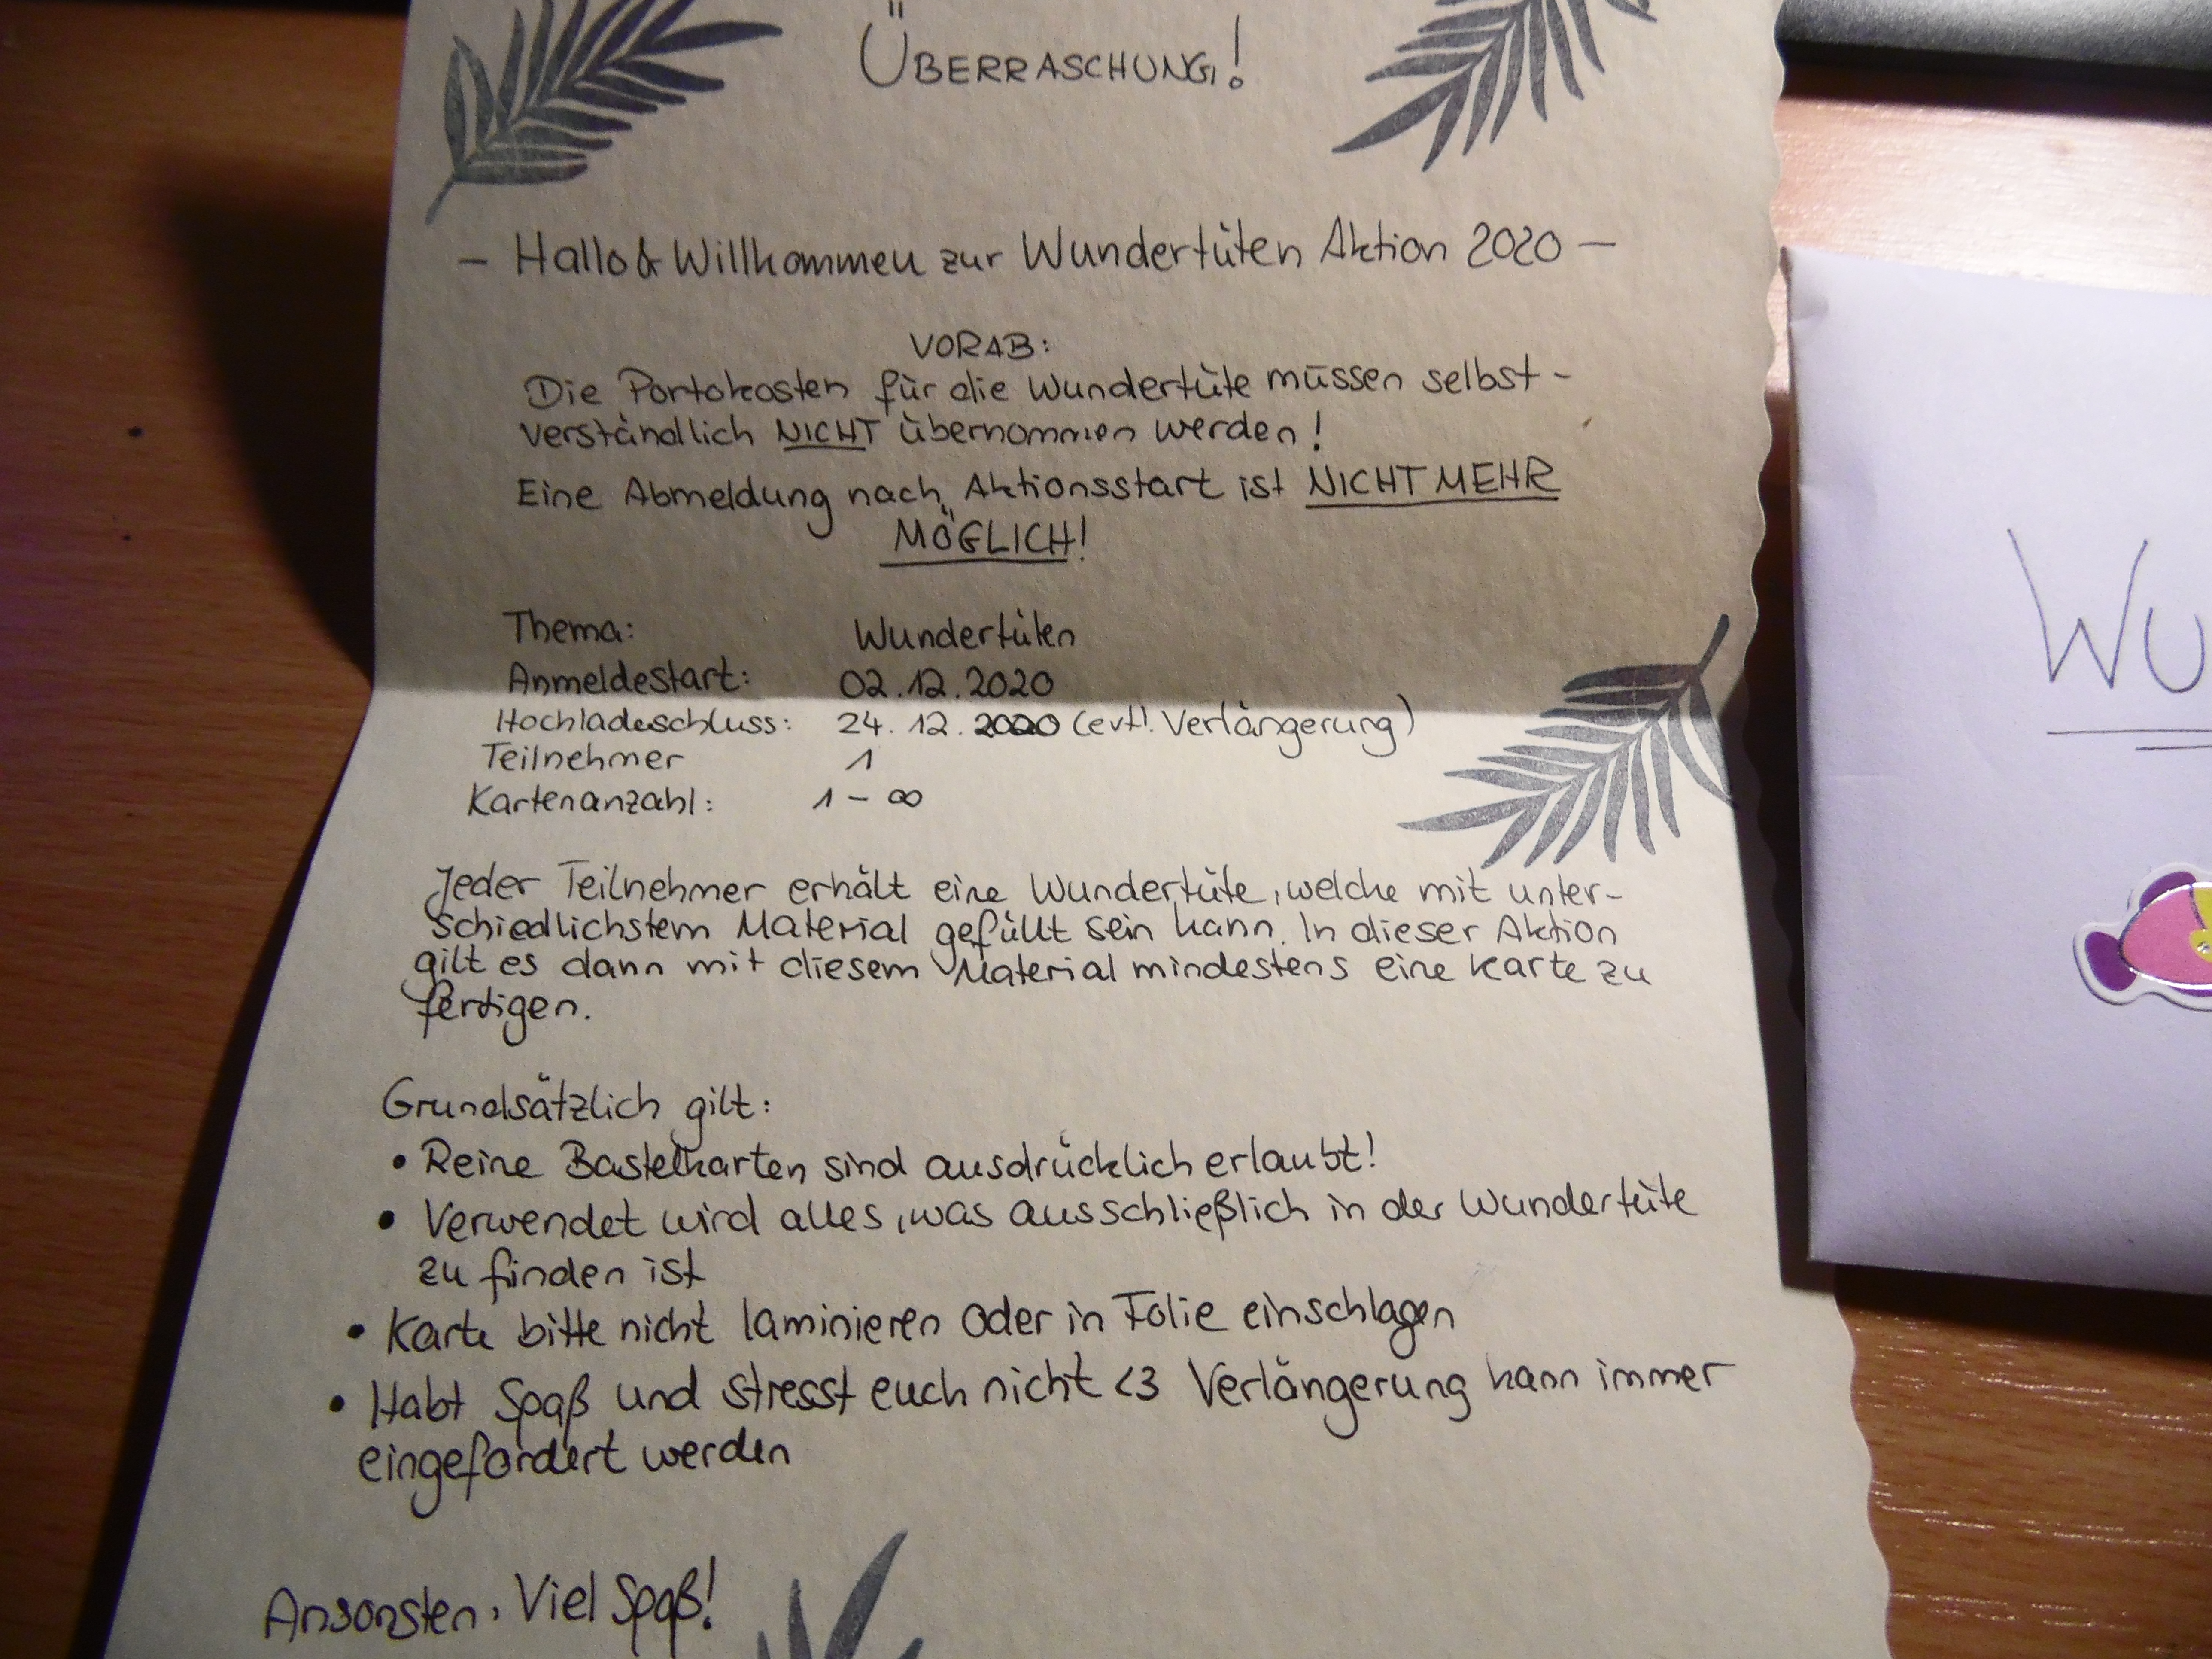 ÜBERRASCHUNG!
– Hallo & Willkommen zur Wundertüten Aktion 2020 –
VORAB:
Die Portokosten für die Wundertüte müssen selbst-
verständlich NICHT übernommen werden!
Eine Abmeldung nach Aktionsstart ist NICHT MEHR
MÖGLICH!
Thema: Wundertüten
Anmeldestart: 02.12.2020
Hochladeschluss: 24.12.2020 (evtl. Verlängerung)
Teilnehmer 1
Kartenanzahl: 1 – ∞
Jeder Teilnehmer erhält eine Wundertüte, welche mit unter-
schiedlichstem Material gefüllt sein kann. In dieser Aktion
gilt es dann mit diesem Material mindestens eine Karte zu
fertigen.
Grundsätzlich gilt:
• Reine Bastelkarten sind ausdrücklich erlaubt!
• Verwendet wird alles, was ausschließlich in der Wundertüte
zu finden ist
• Karte bitte nicht laminieren oder in Folie einschlagen
• Habt Spaß und stresst euch nicht <3 Verlängerung kann immer
eingefordert werden
Ansonsten, Viel Spaß!
WU